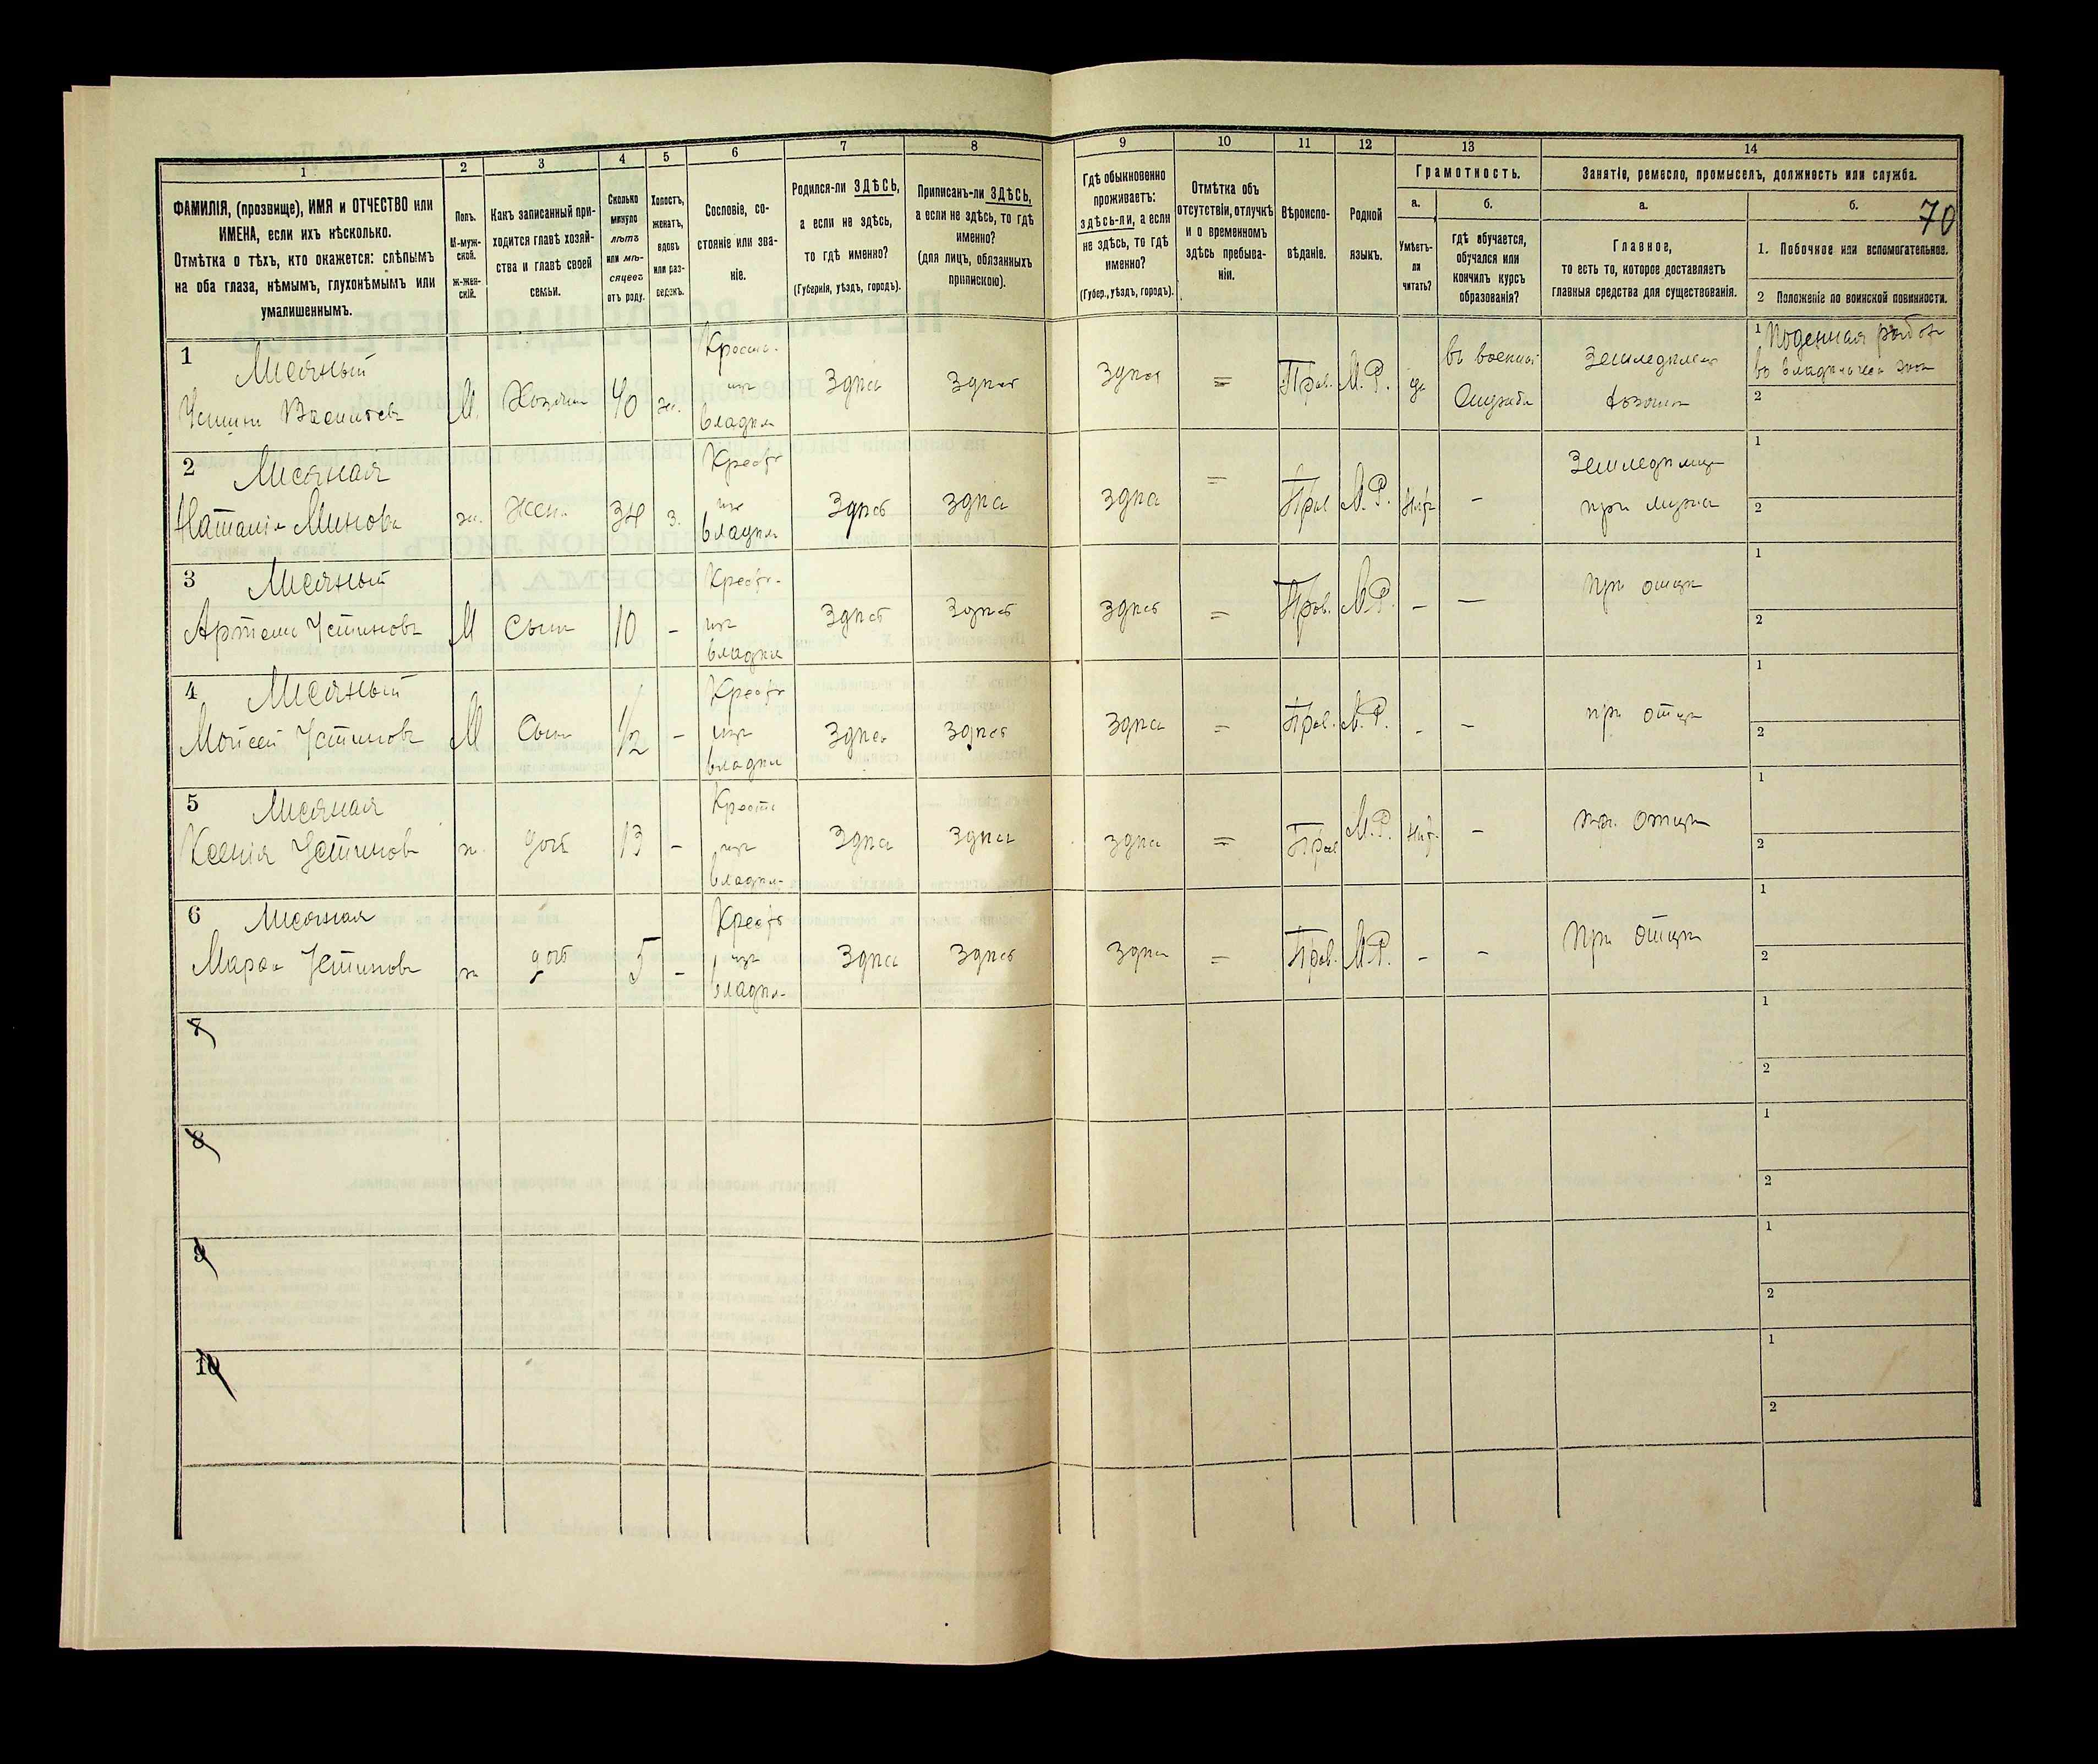 1
2
3
4
5
6
7
8
9
10
11
12
13
14
ФАМИЛІЯ, (прозвище), ИМЯ и ОТЧЕСТВО или
ИМЕНА, если ихъ нѣсколько.
Отмѣтка о тѣхъ, кто окажется: слѣпымъ
на оба глаза, нѣмымъ, глухонѣмымъ или
умалишеннымъ.
Полъ.
М-муж-
ской.
ж-жен-
скій.
Какъ записанный при-
ходится главѣ хозяй-
ства и главѣ своей
семьи.
Сколько
минуло
лѣтъ
или мѣ-
сяцевъ
отъ роду.
Холостъ,
женатъ,
вдовъ
или раз-
веденъ.
Сословіе, со-
стояніе или зва-
ніе.
Родился-ли ЗДѢСЬ,
а если не здѣсь,
то гдѣ именно?
(Губернія, уѣздъ, городъ).
Приписанъ-ли ЗДѢСЬ,
а если не здѣсь, то гдѣ
именно?
(для лицъ, обязанныхъ
припискою).
Гдѣ обыкновенно
проживаетъ:
здѣсь-ли, а если
не здѣсь, то гдѣ
именно?
(Губер., уѣздъ, городъ).
Отмѣтка объ
отсутствіи, отлучкѣ
и о временномъ
здѣсь пребыва-
ніи.
Вѣроиспо-
вѣданіе.
Родной
языкъ.
Грамотность.
а.
Умѣетъ-
ли
читать?
б.
гдѣ обучается,
обучался или
кончилъ курсъ
образованія?
Занятіе, ремесло, промыселъ, должность или служба.
а.
Главное,
то есть то, которое доставляетъ
главныя средства для существованія.
б.
70
1. Побочное или вспомогательное.
2 Положеніе по воинской повинности.
1 Мисяный
Устинъ
М.
Хозяинъ
40
ж.
Крест.
изъ
владѣл
здѣсь
здѣсь
здѣсь
=
Прав.
М.Р.
да
въ военной
службѣ
Земледѣлецъ
1 Поденная работа
2
2 Мисяная
Наталія Минова
ж.
Жена
34
з.
Крест
изъ
владѣл
здѣсь
здѣсь
здѣсь
=
Прав
М.Р.
Нѣтъ
-
при мужѣ
1
2
3 Мисяный
Артемъ Устиновъ
М
Сынъ
10
-
Крест.
изъ
владѣл
здѣсь
здѣсь
здѣсь
=
Прав.
М.Р.
-
-
при отцѣ
1
2
4 Мисяный
Мойсей Устиновъ
М
Сынъ
1/2
-
Крест
изъ
владѣл
здѣсь
здѣсь
здѣсь
=
Прав.
М.Р.
-
-
при отцѣ
1
2
5 Мисяная
Ксенія Устинова
ж.
дочь
13
-
Крест
изъ
владѣл.
здѣсь
здѣсь
здѣсь
=
Прав
М.Р.
Нѣт.
-
при отцѣ
1
2
6 Мисяная
Марѳа Устинова
ж
дочь
5
-
Крест
изъ
владѣл.
здѣсь
здѣсь
здѣсь
=
Прав.
М.Р.
-
-
При отцѣ
1
2
7
1
2
8
1
2
9
1
2
10
1
2